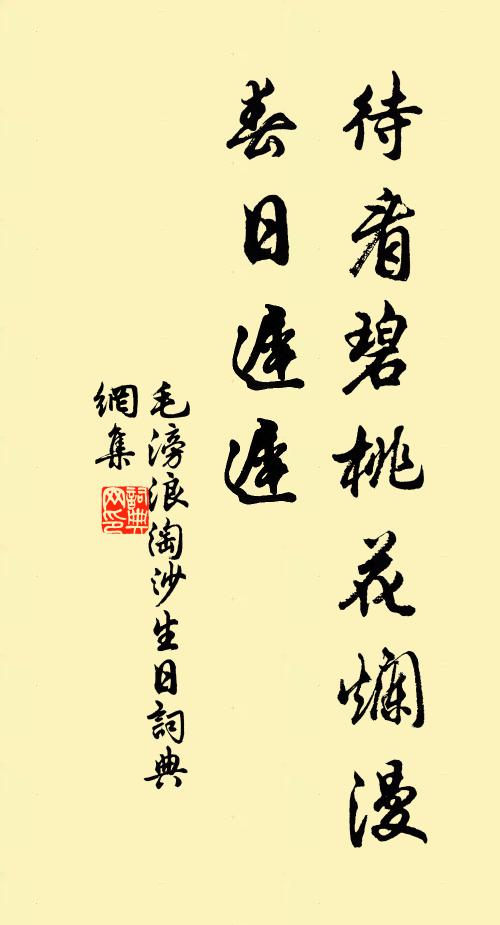 待看碧桃花爛漫
春日遲遲
毛滂浪淘沙生日詞典
網集
詞典
网印